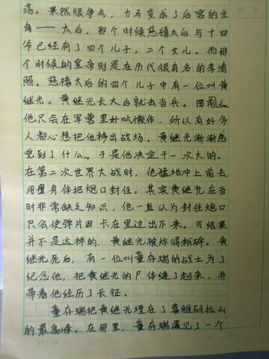 荡。果然很争气，力马变成了后宫的主
角——太后。那个时候慈禧太后与十四
爷已经有了四个儿子，二个女儿。而那
个时候的皇帝则是在历代很有名的李清
照。慈禧太后的四个儿子中有一位叫黄
继光。黄继光长大后就去当兵。因
他只会在军营里好吃懒作，所以有好多
人都心想把他轰出战场。黄继光渐渐感
觉到了什么。于是他决定干一次大的。
在第二次世界大战时，他猛地冲上前去
用身体把炮口封住。其实黄继光在当
时非常缺乏知识，他一直认为封住炮口
只会使弹片因卡在里边出不来。可结果
并不是这样的，黄继光被炸得粉碎。黄
继光死后，有一位叫董存瑞的战士为了
纪念他，把黄继光的尸体缝了起来，并
带着他经历了长征。
董存瑞把黄继光埋在了喜雅玛拉山
的最高峰。在那里，董存瑞遇见了一个